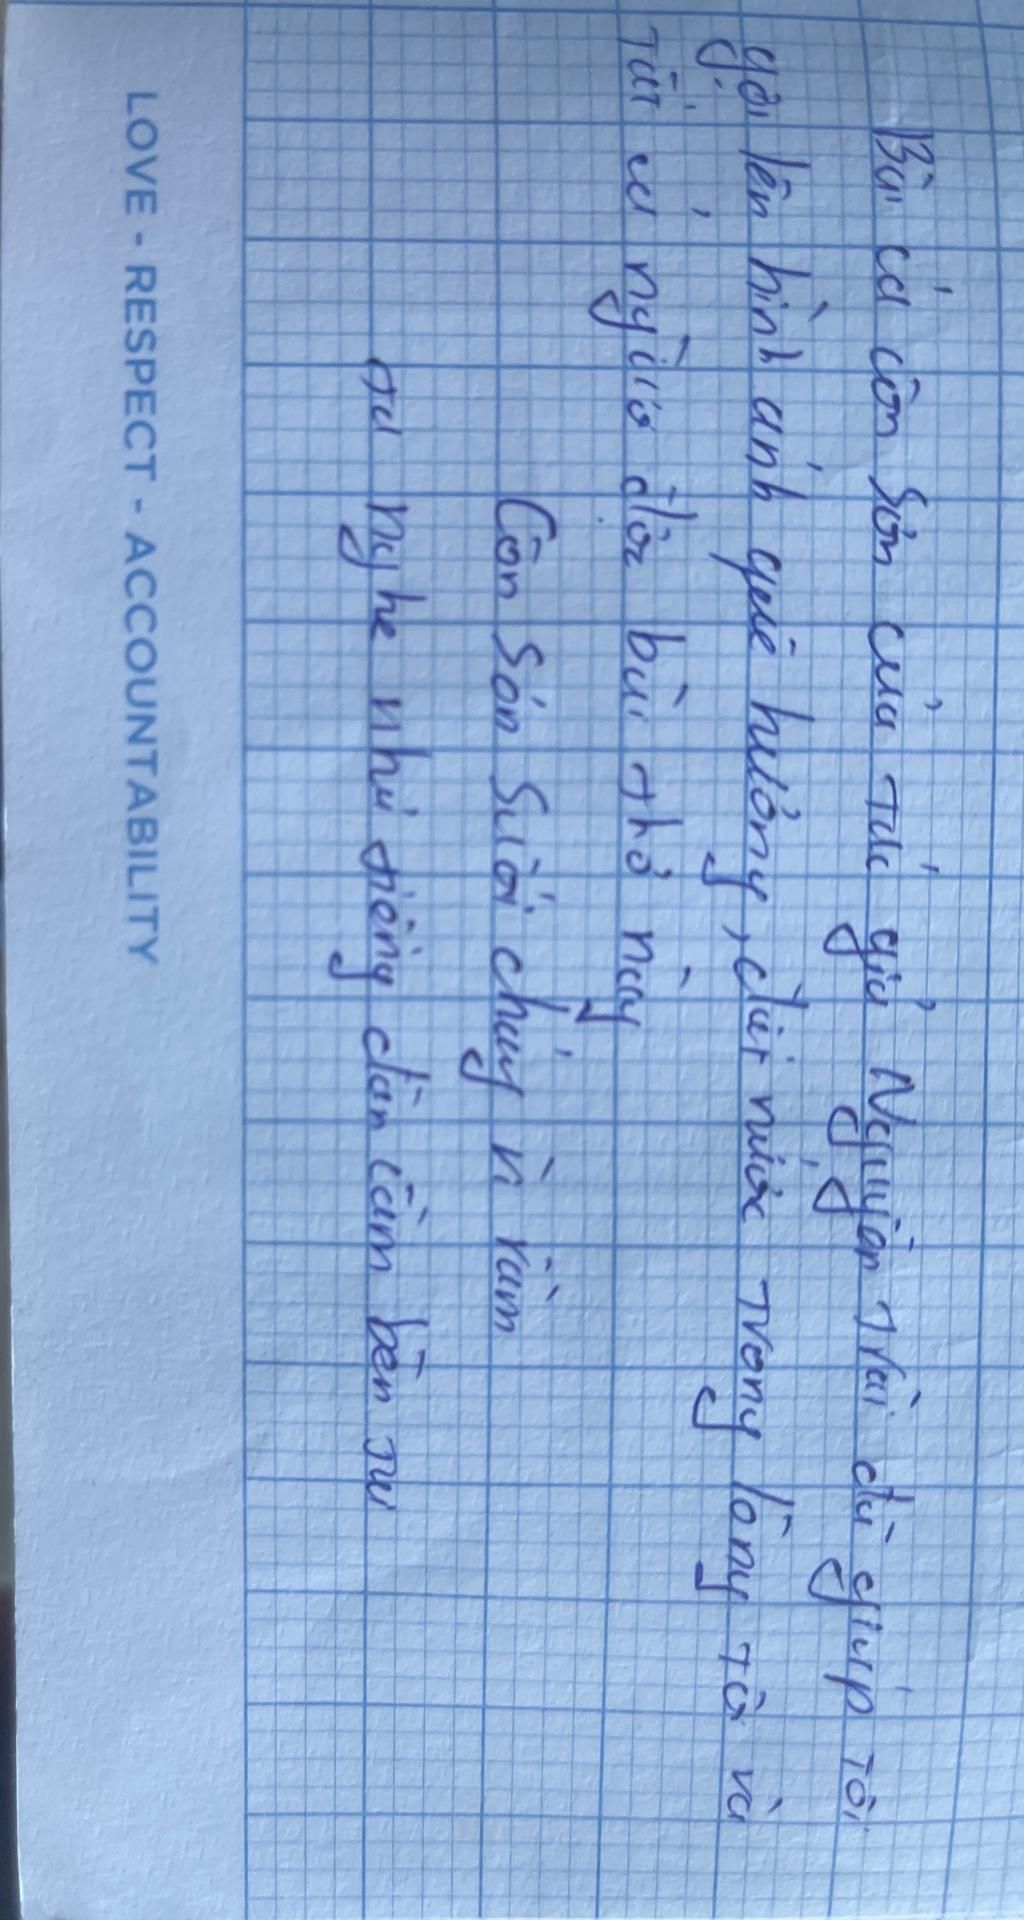 Bài ca Côn Sơn của tác giả Nguyễn Trãi đã giúp tôi
gợi lên hình ảnh quê hương, đất nước trong lòng tôi và
tất cả người đọc bài thơ này
Côn Sơn Suối chảy rì rầm
ta nghe như tiếng đàn cầm bên tai
LOVE - RESPECT - ACCOUNTABILITY